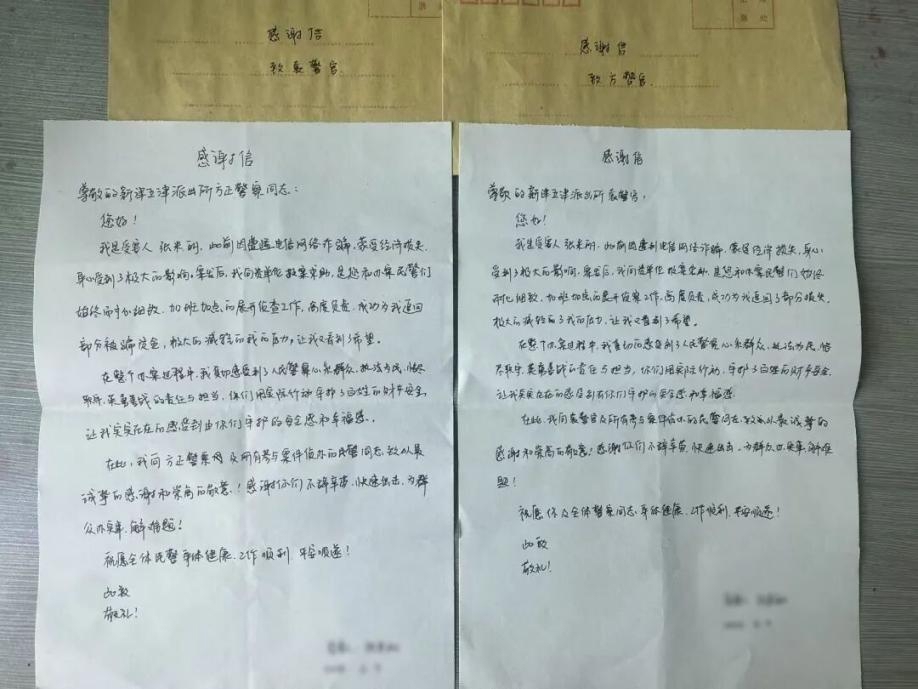 感谢信
致袁警官
感谢信
致方警官
感谢信
尊敬的新津五津派出所方正警察同志：
您好！
我是受害人 张来明，此前因遭遇电信网络诈骗，蒙受经济损失，
身心受到了极大的影响，案发后，我向贵单位报案求助，是您和办案民警们
始终耐心细致、加班加点的展开侦查工作，高度负责，成功为我追回
部分被骗资金，极大的减轻的我的压力，让我又看到了希望。
在整个办案过程中，我真切感受到了人民警察心系群众、执法为民、恪尽
职守、英勇善战的责任与担当，你们用实际行动守护了百姓的财产安全，
让我实实在在的感受到由你们守护的安全感和幸福感。
在此，我向方正警察及所有参与案件侦办的民警同志，致以最
诚挚的感谢和崇高的敬意！感谢你们不辞辛劳、快速出击、为群
众办实事、解难题！
祝愿全体民警身体健康、工作顺利、平安顺遂！
此致
敬礼！
感谢信
尊敬的新津五津派出所袁警官：
您好！
我是受害人 张来明，此前因遭到电信网络诈骗，蒙受经济损失，身心
受到了极大的影响，案发后，我向贵单位报案求助，是您和办案民警们始终
耐心细致、加班加点的展开侦察工作，高度负责，成功为我追回了部分损失，
极大的减轻的了我的压力，让我又看到了希望。
在整个办案过程中，我真切的感受到了人民警察心系群众、执法为民、恪
尽职守、英勇善战的责任与担当，你们用实际行动，守护了百姓的财产安全，
让我实实在在的感受到有你们守护的安全感和幸福感。
在此，我向袁警官及所有参与案件侦办的民警同志，致以最诚挚的
感谢和崇高的敬意！感谢你们不辞辛劳、快速出击、为群众办实事、解难
题！
祝愿你及全体警察同志身体健康、工作顺利、平安顺遂！
此致
敬礼！